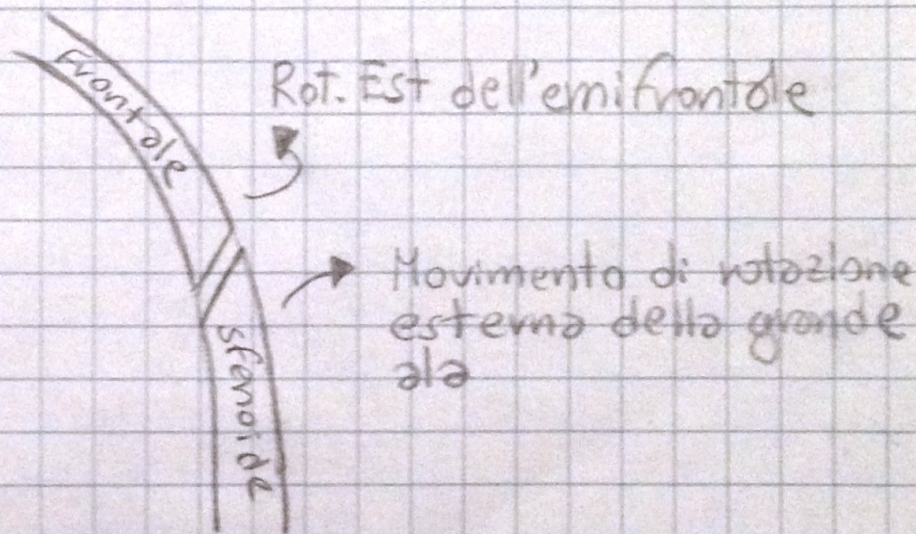 Frontale
Rot. Est dell'emifrontale
Movimento di rotazione
esterna della grande
ala
sfenoide